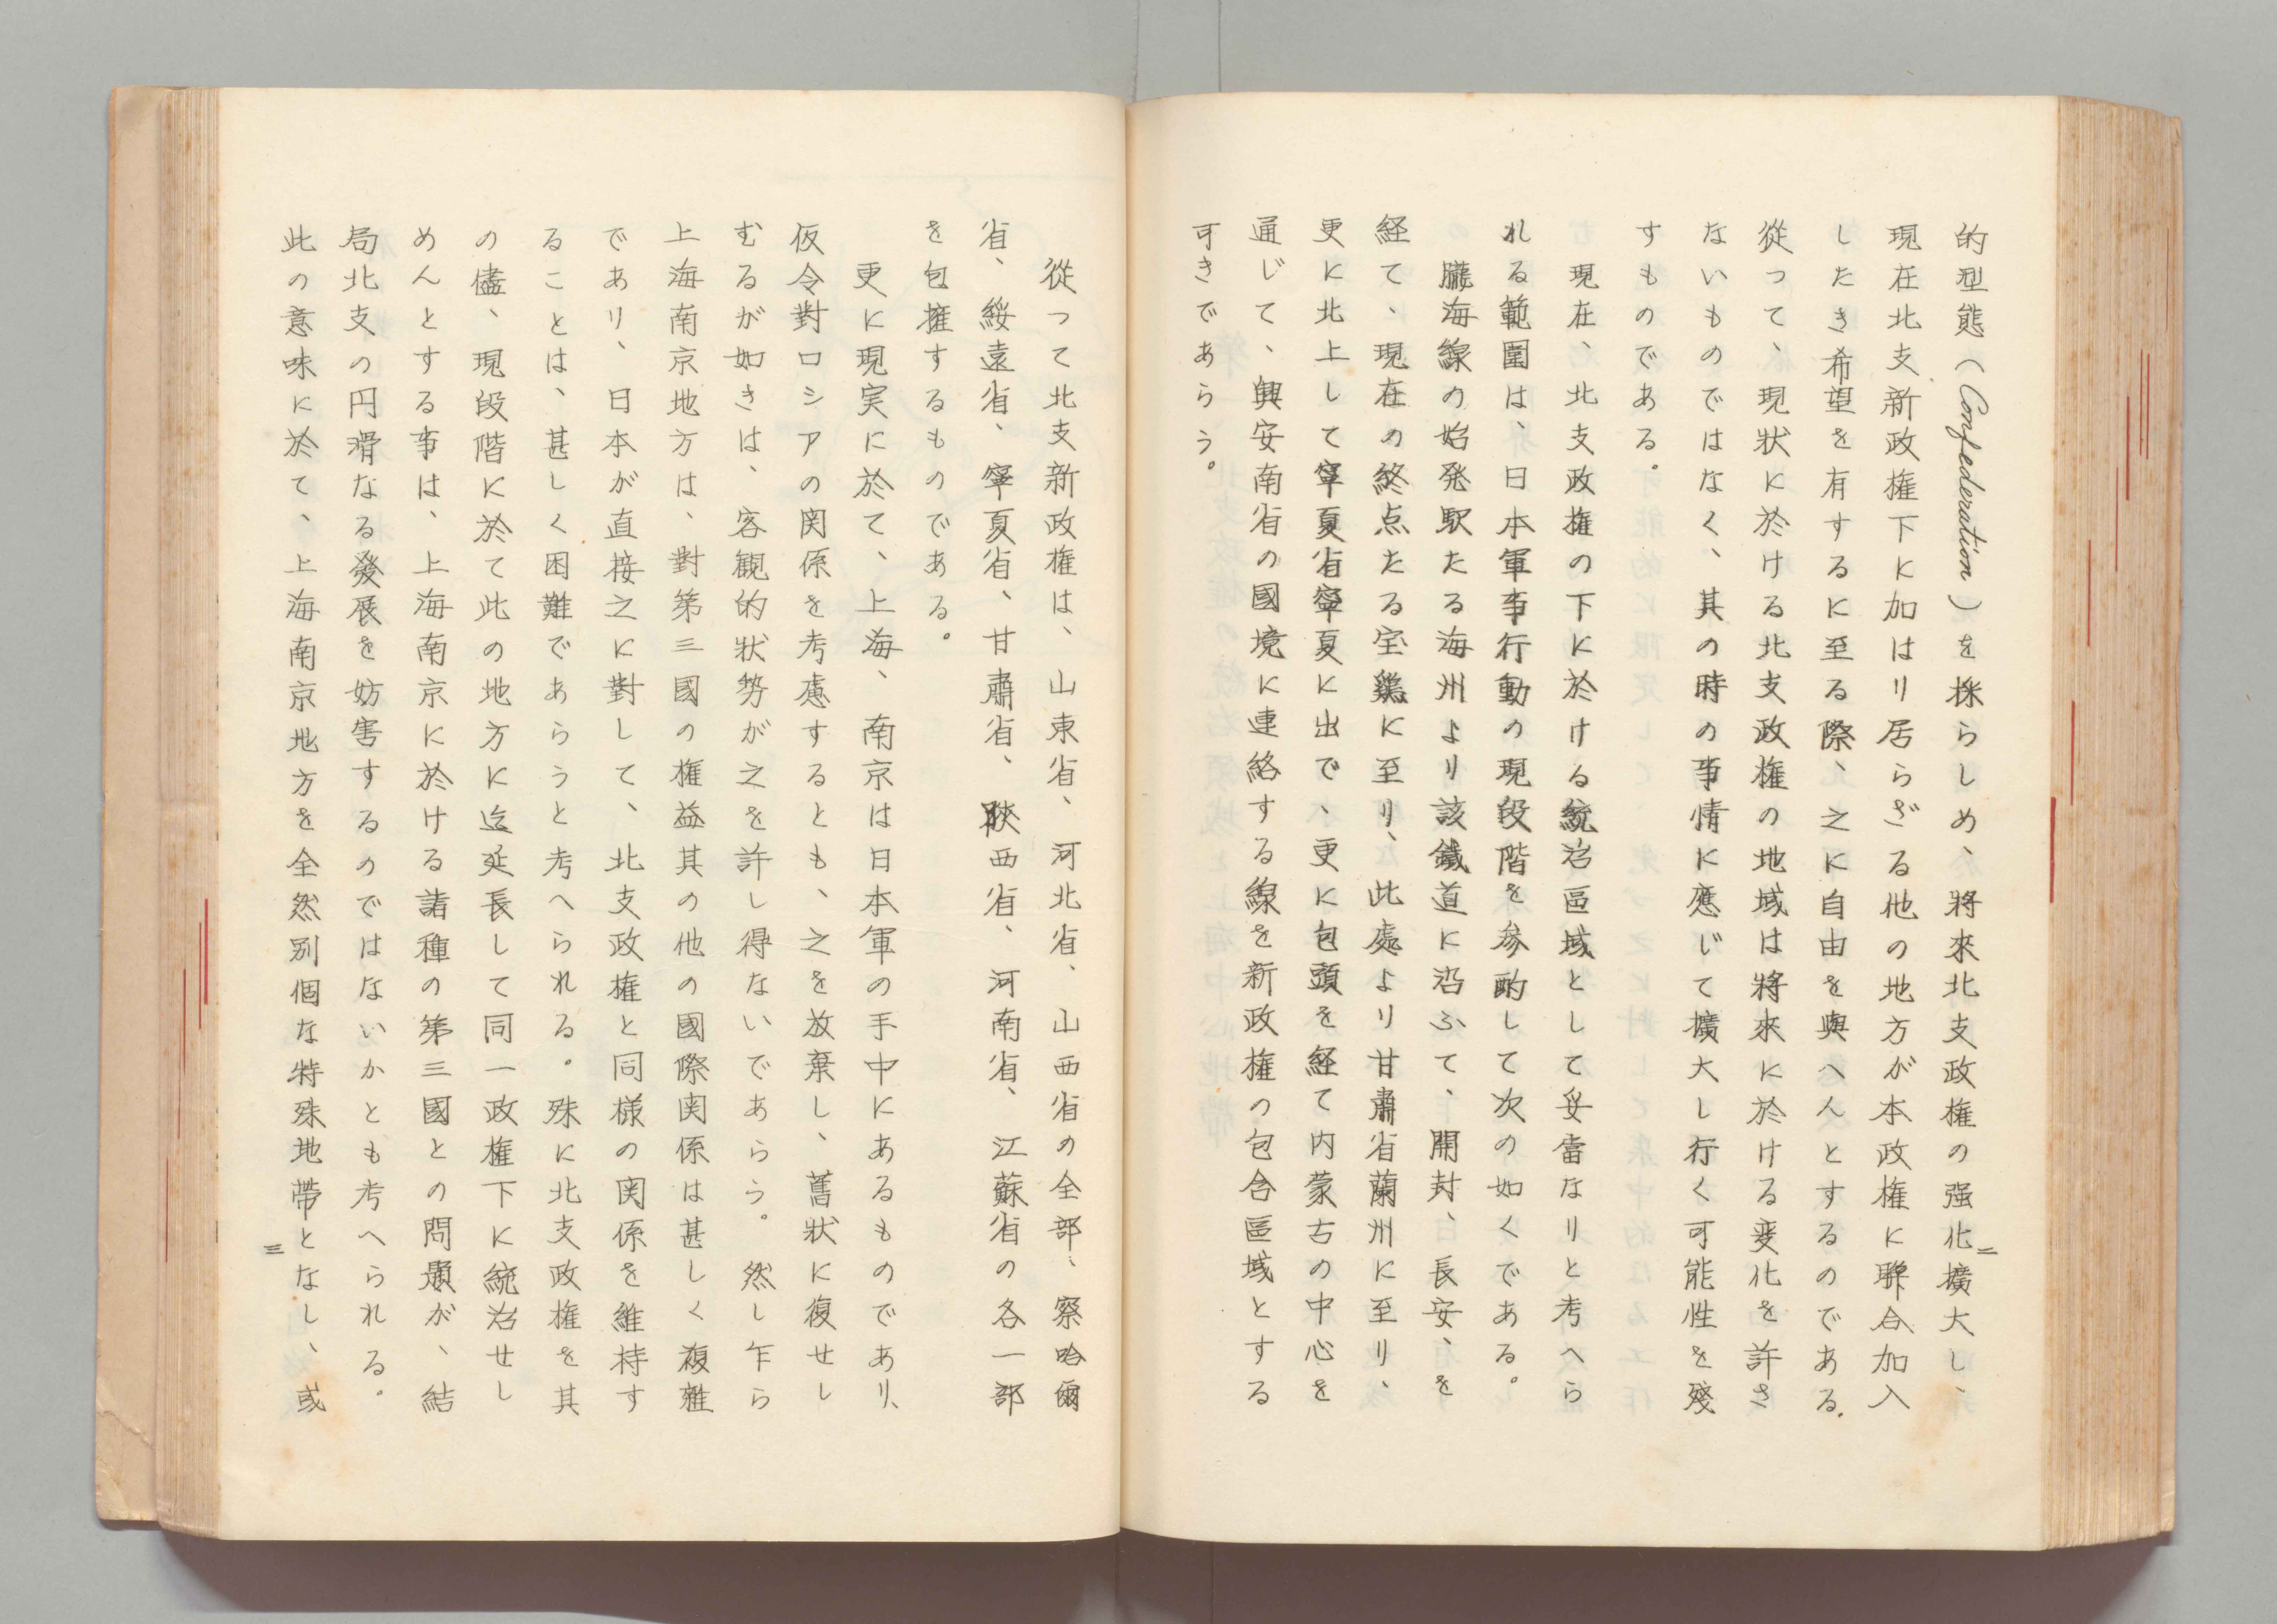 的型態（Confederation）を採らしめ、將來北支政権の强化擴大し、
現在北支新政権下に加はり居らざる他の地方が本政権に聯合加入
したき希望を有するに至る際、之に自由を與へんとするのである。
從って、現状に於ける北支政権の地域は將來に於ける変化を許さ
ないものではなく、其の時の事情に應じて擴大し行く可能性を殘
すものである。
現在、北支政権の下に於ける統治區域として妥當なりと考へら
れる範圍は、日本軍事行動の現段階を參酌して次の如くである。
隴海線の始発駅たる海州より該鐵道に沿ふて、開封、長安、を
経て、現在の終点たる宝鶏に至り、此處より甘肅省蘭州に至り、
更に北上して寧夏省寧夏に出で、更に包頭を経て内蒙古の中心を
通じて、興安南省の國境に連絡する線を新政権の包含區域とする
可きであらう。
二
從って北支新政権は、山東省、河北省、山西省の全部、察哈爾
省、綏遠省、寧夏省、甘肅省、陝西省、河南省、江蘇省の各一部
を包擁するものである。
更に現実に於て、上海、南京は日本軍の手中にあるものであり、
仮令對ロシアの関係を考慮するとも、之を放棄し、舊狀に復せし
むるが如きは、客観的狀勢が之を許し得ないであらう。然し乍ら
上海南京地方は、對第三國の権益其の他の國際関係は甚しく複雜
であり、日本が直接之に對して、北支政権と同様の関係を維持す
ることは、甚しく困難であらうと考へられる。殊に北支政権を其
の儘、現段階に於て此の地方に迄延長して同一政権下に統治せし
めんとする事は、上海南京に於ける諸種の第三國との問題が、結
局北支の円滑なる發展を妨害するのではないかとも考へられる。
此の意味に於て、上海南京地方を全然別個な特殊地帶となし、或
三